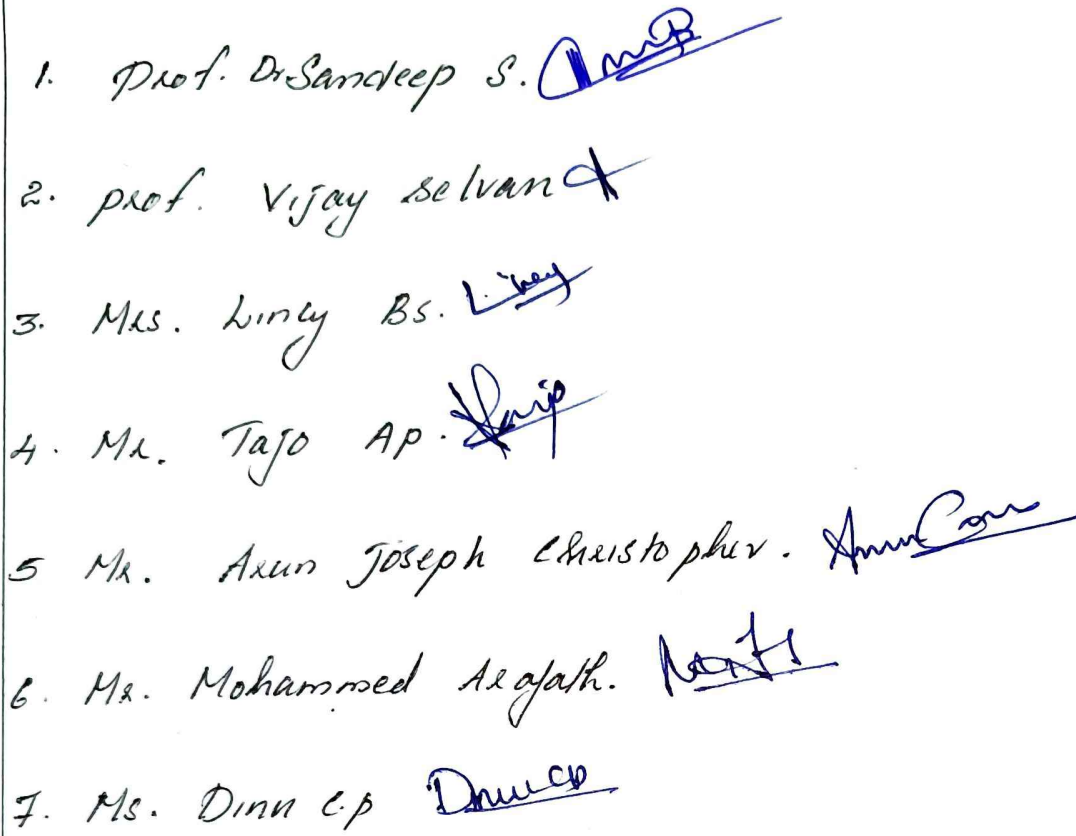 1. Prof. Dr Sandeep S.
2. prof. Vijay selvan
3. Mrs. Lincy BS. Lincy
4. Mr. Tajo AP.
5 Mr. Arun Joseph Christopher.
6. Mr. Mohammed Arafath.
7. Ms. Dinu C.P